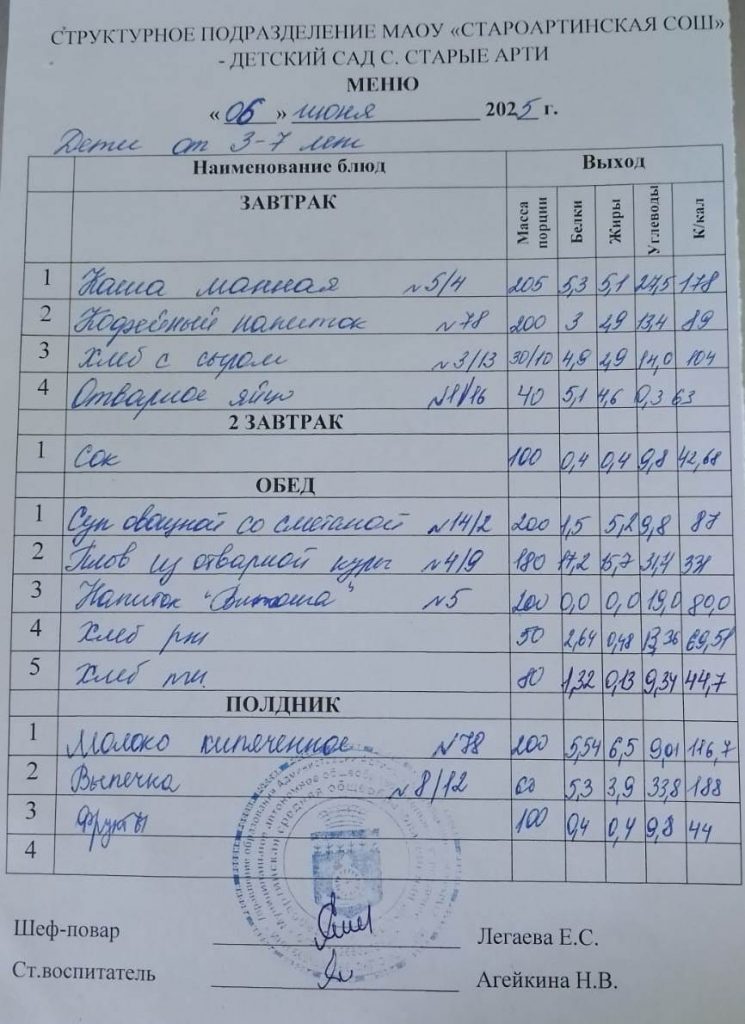 СТРУКТУРНОЕ ПОДРАЗДЕЛЕНИЕ МАОУ «СТАРОАРТИНСКАЯ СОШ»
- ДЕТСКИЙ САД С. СТАРЫЕ АРТИ
МЕНЮ
« 06 » июня 2025 г.
Дети от 3-7 лет
Наименование блюд Выход
ЗАВТРАК Масса порции Белки Жиры Углеводы К/кал
1 Каша манная №5/4 205 5,3 5,1 27,5 178
2 Кофейный напиток №78 200 3 2,9 13,4 89
3 Хлеб с сыром №3/13 30/10 4,9 2,9 14,0 104
4 Отварное яйцо 40 5,1 4,6 0,3 63
2 ЗАВТРАК
1 Сок 100 0,4 0,4 9,8 42,68
ОБЕД
1 Суп овощной со сметаной №14/2 200 1,5 5,2 9,8 87
2 Плов из отварной куры №4/9 180 17,2 15,7
3 Напиток "Витоша" №5 200 0,0 0,0 19,0 80,0
4 Хлеб рж 50 2,64 0,48 13,36 69,51
5 Хлеб пш. 80 1,32 0,13 9,34 44,7
ПОЛДНИК
1 Молоко кипяченное №78 200 5,54 6,5 9,01 116,7
2 Выпечка №8/12 60 5,3 3,9 33,8 188
3 Фрукты 100 0,4 0,4 9,8 44
4
Шеф-повар Легаева Е.С.
Ст.воспитатель Агейкина Н.В.